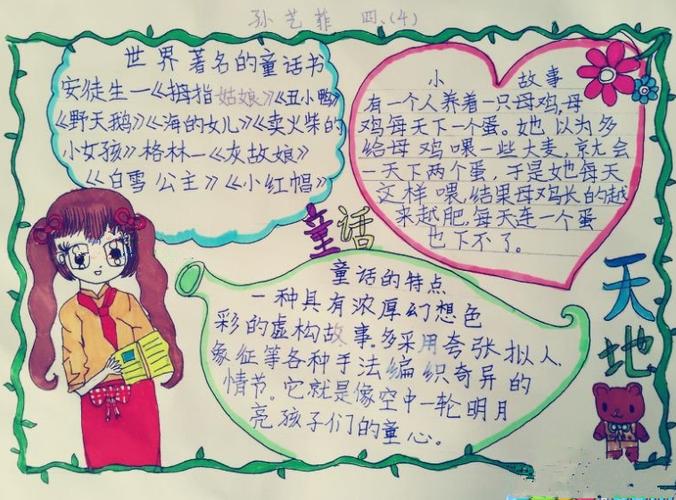 孙艺菲 四.(4)
世界著名的童话书
安徒生一《拇指姑娘》《丑小鸭》
《野天鹅》《海的女儿》《卖火柴的
小女孩》格林一《灰故娘》
《白雪公主》《小红帽》
小故事
有一个人养着一只母鸡,母
鸡每天下一个蛋。她以为多
给母鸡喂一些大麦,京尤会
一天下两个蛋,于是她每天
这样喂,结果母鸡长的越
来越肥,每天连一个蛋
也下不了。
童话
天地
童话的特点
一种具有浓厚幻想色
彩的虚构故事.多采用夸张拟人.
象征等各种手法编织奇异的
情节。它就是像空中一轮明月
亮孩子们的童心。